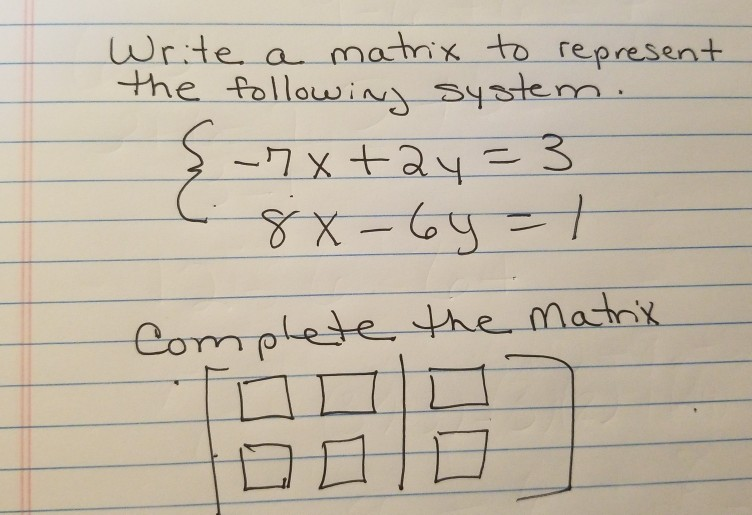 Write a matrix to represent
the following system.
{ -7x + 2y = 3
8x - 6y = 1
Complete the Matrix